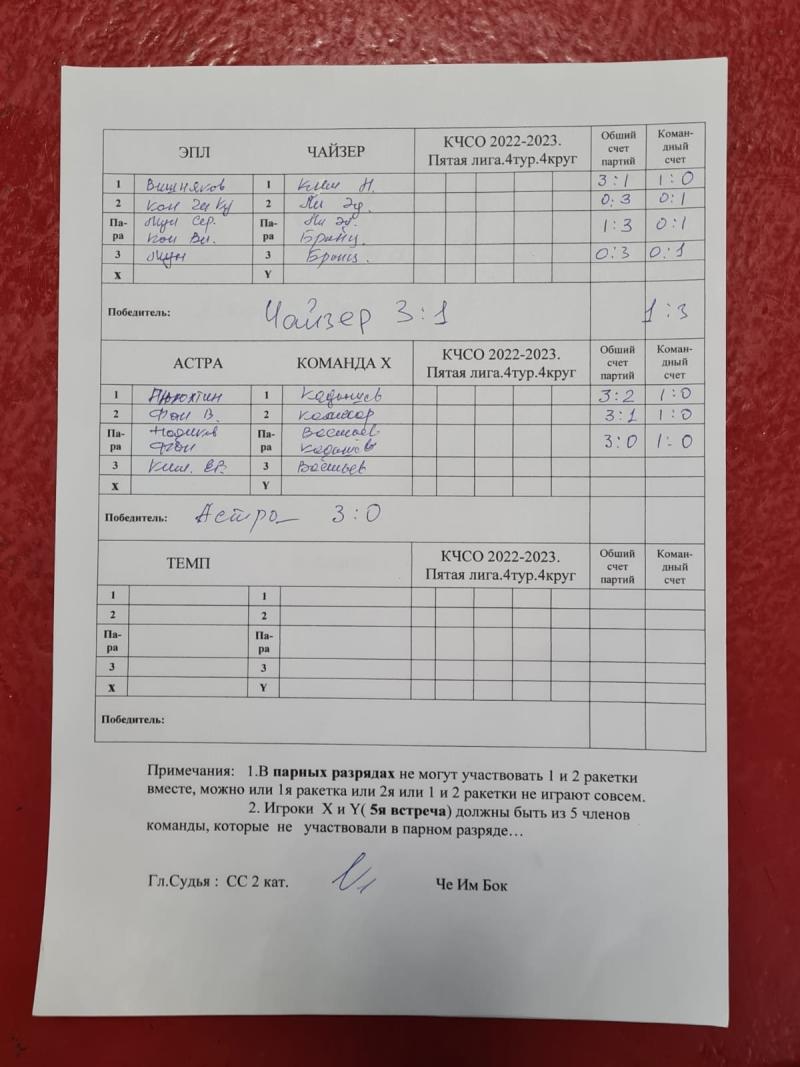 ЭПЛ ЧАЙЗЕР КЧСО 2022-2023. Пятая лига.4тур.4круг Общий счет партий Коман-дный счет
1 Вишняков 1 Ким Н. 3:1 1:0
2 Кон 2 Ли Эд. 0:3 0:1
Па-ра Мун Сер. Па-ра Ли Эд. 1:3 0:1
Кон Вл. Бронц.
3 Мун 3 Бронц. 0:3 0:1
X Y
Победитель: Чайзер 3:1 1:3
АСТРА КОМАНДА X КЧСО 2022-2023. Пятая лига.4тур.4круг Общий счет партий Коман-дный счет
1 1 3:2 1:0
2 Фон В. 2 3:1 1:0
Па-ра Па-ра 3:0 1:0
3 Ким. 3
X Y
Победитель: Астра 3:0
ТЕМП КЧСО 2022-2023. Пятая лига.4тур.4круг Общий счет партий Коман-дный счет
1 1
2 2
Па-ра Па-ра
3 3
X Y
Победитель:
Примечания: 1.В парных разрядах не могут участвовать 1 и 2 ракетки
вместе, можно или 1я ракетка или 2я или 1 и 2 ракетки не играют совсем.
2. Игроки X и Y( 5я встреча) должны быть из 5 членов
команды, которые не участвовали в парном разряде…
Гл.Судья : СС 2 кат. Че Им Бок